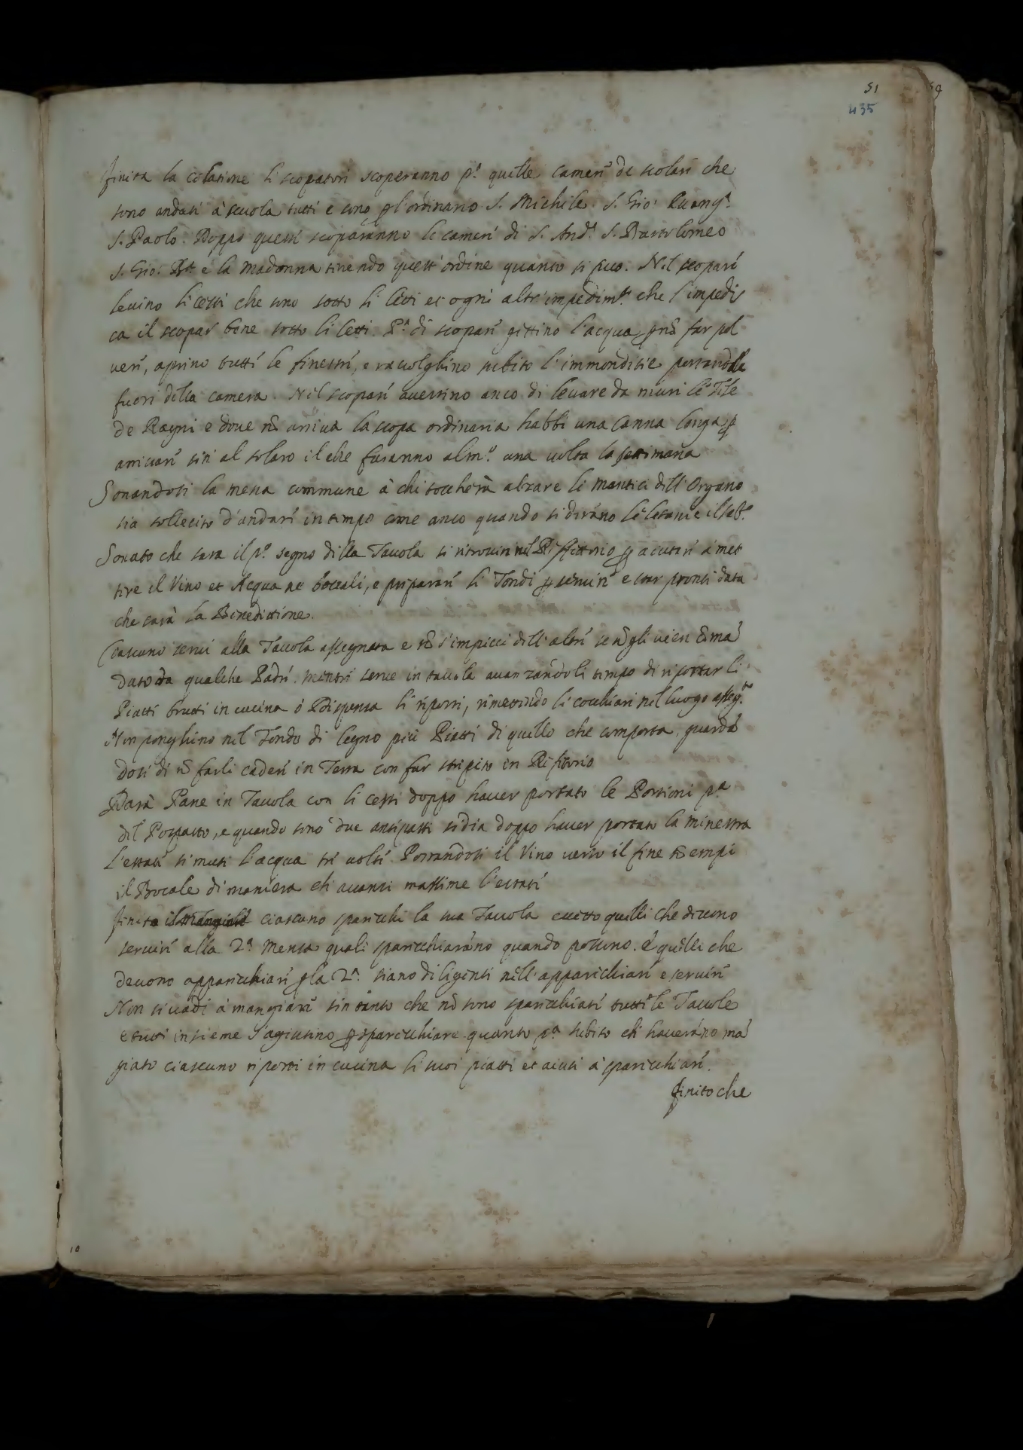 51
435
finita la colatione li scopatori scoperanno p.ª quelle cameri de scolari che
sono andati à scuola tutti e sono pl'ordinario S. Michele. S. Gio: Euang.ª
S. Paolo. Doppo questi scoparanno le cameri di S. And.ª S. Bartolomeo
S. Gio: e la Madonna tenendo quest'ordine quanto si puo. Nel scopari
levino li cesti che sono sotto li letti et ogni altr'impedim.to che l'impedis
ca il scopar bene sotto li letti. P.ª di scopari gittino l'acqua p nõ far pol
veri, aprino tutti le finestri, e racolghino subito l'immonditie portandole
fuori della camera. Nel scopari avertino anco di levare da muri le Tele
de Ragni e dove nõ arriva la scopa ordinaria habbi una canna longa p
arrivari sin al solaro il che faranno alm.º una volta la settimana
Sonandosi la messa commune à chi toccherà alzare li mantici dell'Organo
sia sollecito d'andari in tempo come anco quando si dirãno le letanie il sab.º
Sonato che sara il p.º segno della Tavola si ritrovino nel Reffittorio p aiutari à met
tere il Vino et Acqua ne boccali, e preparari li Tondi p servire e star pronti data
che sarà la Benedittione.
Ciascuno servi alla Tavola assegnata e nõ s'impicci dell'altri se nõ gli vien comã
dato da qualche Padri. mentri serve in tavola avanzandoli tempo di riportar li
Piatti brutti in cucina ó Dispensa li riporti, rimettendo li cocchiari nel luogo asseg.to
Non ponghino nel Tondo di legno più Piatti di quello che comporta guardã
dosi di nõ farli caderi in Terra con far strepito in Refittorio
Darà Pane in Tavola con li cesti doppo haver portato le Portioni p.ª
del Pospasto, e quando sono due antipasti si dia doppo haver portato la minestra
L'estati si muti l'acqua tri volti. Portandosi il Vino verso il fine nõ empi
il Bocale di maniera che avanzi massime l'estati
finita ciascuno sparecchi la sua Tavola eccetto quelli che devono
serviri alla 2.ª Mensa quali sparecchiarãno quando potrano. é quelli che
devono apparecchiari p la 2.ª siano diligenti nell'apparecchiari e serviri
Non si vadi à mangiari sin tanto che nõ sono sparecchiati tutti le Tavole
e tutti insieme s'agiutino p sparecchiare quanto p.ª subito che haverãno mã
giato ciascuno riporti in cucina li suoi piatti et aiuti à sparecchiari.
finito che